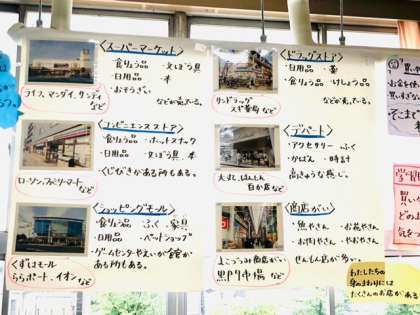 〈スーパーマーケット〉
・食りょう品 ・文ぼう具
・日用品 ・本
・おそうざい
などが売ってる。
ライフ、マンダイ、サンディ
など
〈コンビニエンスストア〉
・食りょう品 ・ホットスナック
・日用品 ・文ぼう具 本
・くじびきがある所もある。
ローソン、ファミリーマート
など
〈ショッピングモール〉
・食りょう品 ・ふく ・家具
・日用品 ・ペットショップ
・ゲームセンターやえいが館が
ある所もある。
くずはモール
ららポート、イオン など
〈ドラッグストア〉
・日用品 ・薬
・食りょう品 ・けしょう品
などが売っている。
サンドラッグ
スギ薬局 など
〈デパート〉
・アクセサリー ・ふく
・かばん ・時計
高きゅうな感じ。
大丸、はんしん
など
〈商店がい〉
・魚やさん ・お花やさん
・お肉やさん ・やおやさん
せんもん店が多い。
商店がい
黒門市場 など
わたしたちの
身のまわりには
たくさんのお店がある